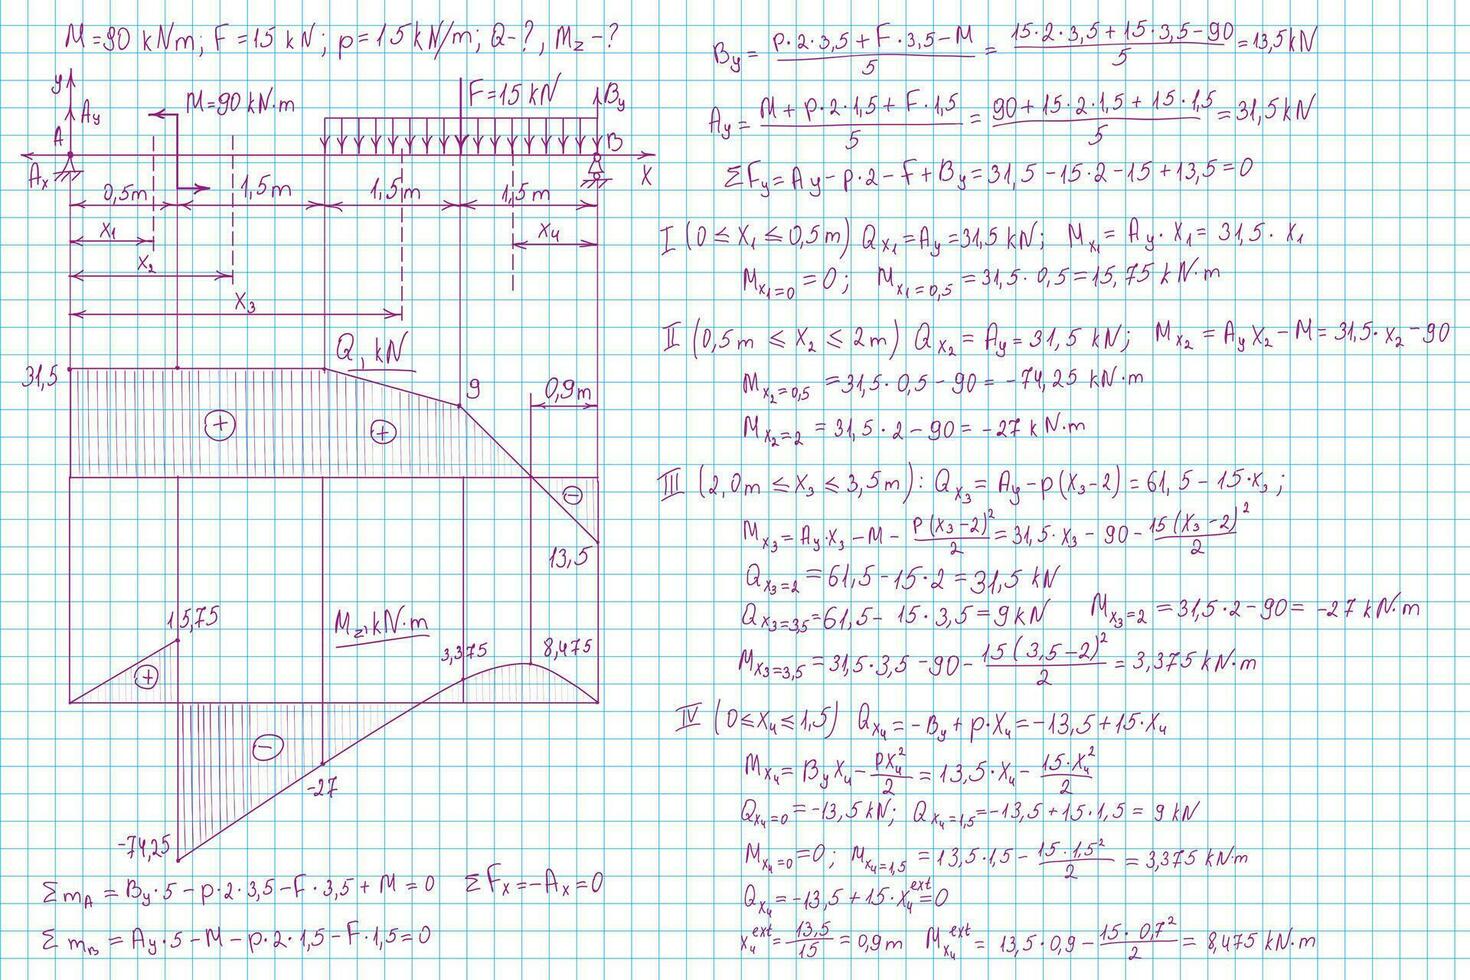 M=90 kNm; F=15 kN; p=15kN/m; Q-?, Mz-?
y
Ay
M=90 kN·m
F=15 kN
By
A
B
Ax
X
0,5m
1,5m
1,5m
1,5m
x1
x4
x2
x3
Q, kN
31,5
9
0,9m
+
+
−
13,5
15,75
Mz, kN·m
3,375
8,475
+
−
-27
-74,25
Σ mA = By·5 − p·2·3,5 − F·3,5 + M = 0 ΣFx = −Ax = 0
Σ mB = Ay·5 − M − p·2·1,5 − F·1,5 = 0
By = (p·2·3,5 + F·3,5 − M)/5 = (15·2·3,5 + 15·3,5 − 90)/5 = 13,5 kN
Ay = (M + p·2·1,5 + F·1,5)/5 = (90 + 15·2·1,5 + 15·1,5)/5 = 31,5 kN
ΣFy = Ay − p·2 − F + By = 31,5 − 15·2 − 15 + 13,5 = 0
I (0 ≤ x1 ≤ 0,5m) Qx1 = Ay = 31,5 kN; Mx1 = Ay·x1 = 31,5·x1
Mx1=0 = 0; Mx1=0,5 = 31,5·0,5 = 15,75 kN·m
II (0,5m ≤ x2 ≤ 2m) Qx2 = Ay = 31,5 kN; Mx2 = Ay x2 − M = 31,5·x2 − 90
Mx2=0,5 = 31,5·0,5 − 90 = −74,25 kN·m
Mx2=2 = 31,5·2 − 90 = −27 kN·m
III (2,0m ≤ x3 ≤ 3,5m): Qx3 = Ay − p(x3−2) = 61,5 − 15·x3;
Mx3 = Ay·x3 − M − p(x3−2)²/2 = 31,5·x3 − 90 − 15(x3−2)²/2
Qx3=2 = 61,5 − 15·2 = 31,5 kN
Qx3=3,5 = 61,5 − 15·3,5 = 9 kN Mx3=2 = 31,5·2 − 90 = −27 kN·m
Mx3=3,5 = 31,5·3,5 − 90 − 15(3,5−2)²/2 = 3,375 kN·m
IV (0 ≤ x4 ≤ 1,5) Qx4 = −By + p·x4 = −13,5 + 15·x4
Mx4 = By x4 − px4²/2 = 13,5·x4 − 15·x4²/2
Qx4=0 = −13,5 kN; Qx4=1,5 = −13,5 + 15·1,5 = 9 kN
Mx4=0 = 0; Mx4=1,5 = 13,5·1,5 − 15·1,5²/2 = 3,375 kN·m
Qx4 = −13,5 + 15·x4^ext = 0
x4^ext = 13,5/15 = 0,9m Mx4^ext = 13,5·0,9 − 15·0,7²/2 = 8,475 kN·m